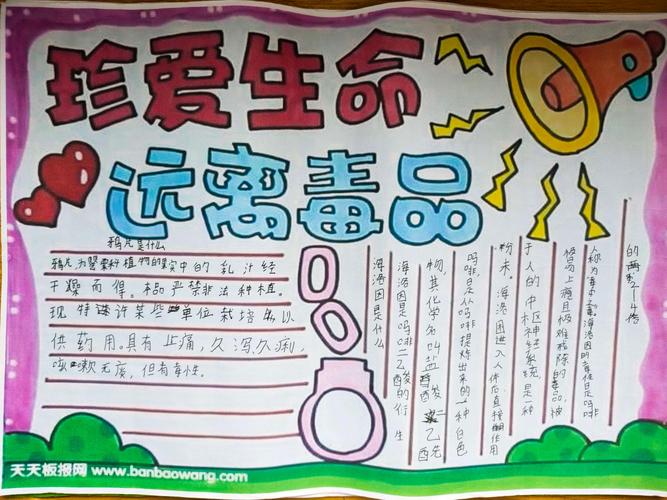 珍爱生命
远离毒品
鸦片是什么
鸦片为罂粟科植物的果实中的乳汁经
干燥而得。本品严禁非法种植。
现特许某些单位栽培为以
供药用。具有止痛,久泻久痢,
咳嗽无痰,但有毒性。
海洛因是什么
海洛因是吗啡二乙酸的衍生
物,其化学名叫盐酸二乙
吗啡是从吗啡提炼出来的一种白色
粉末。海洛因进入人体后直接作用
于人的中枢神经系统,是一种
极易上瘾且极难戒除的毒品,被
人称为毒中之毒海洛因的毒性是吗啡
的2-4倍
天天板报网 www.banbaowang.com